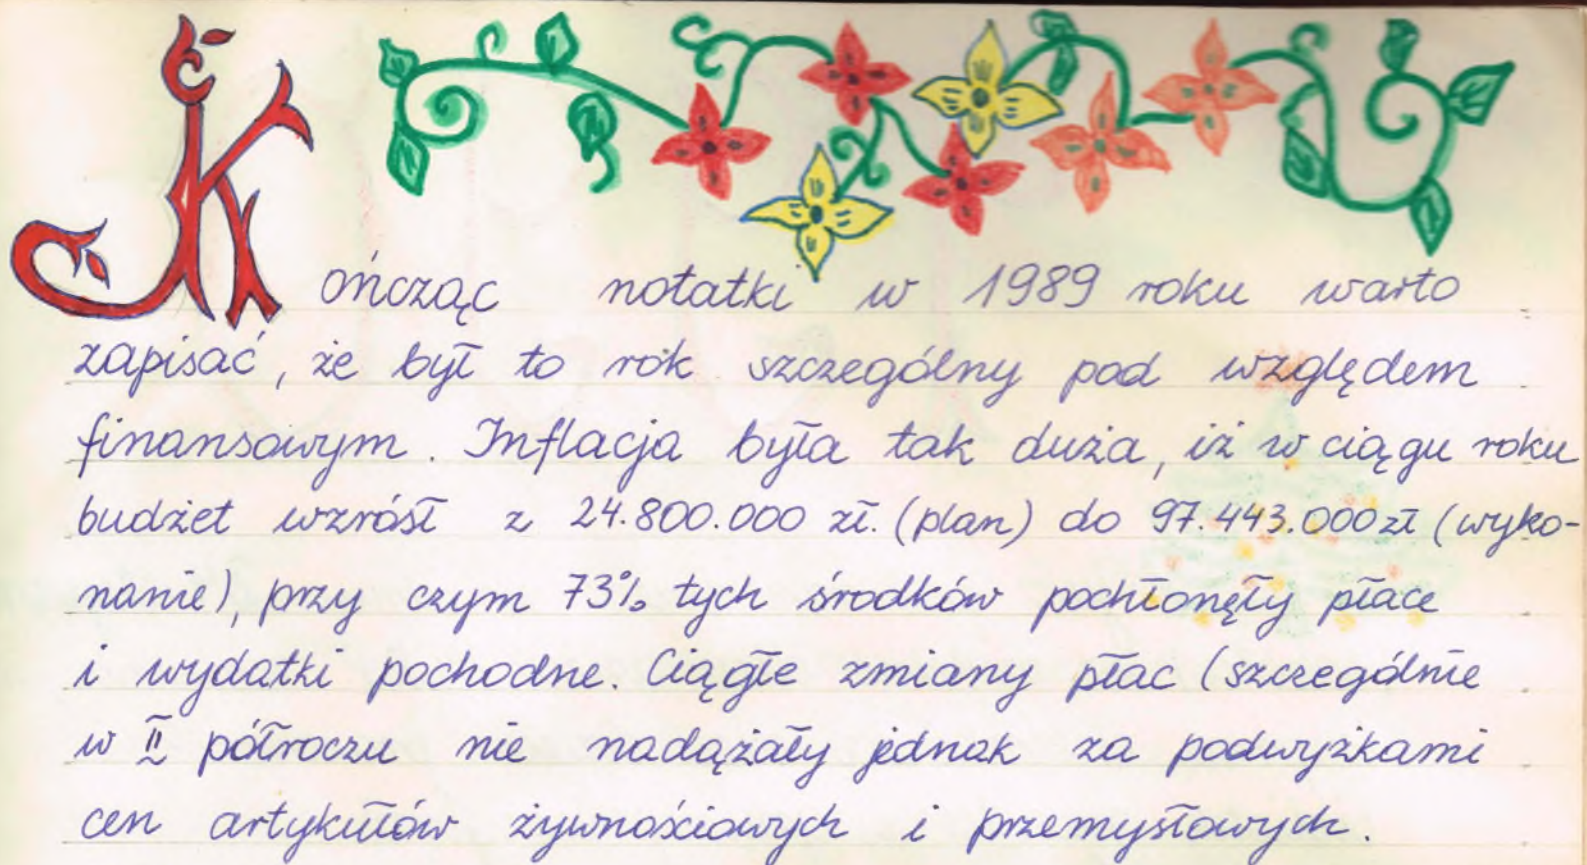 Kończąc notatki w 1989 roku warto
zapisać, że był to rok szczególny pod względem
finansowym. Inflacja była tak duża, iż w ciągu roku
budżet wzrósł z 24.800.000 zł. (plan) do 97.443.000 zł (wyko-
nanie), przy czym 73% tych środków pochłonęły płace
i wydatki pochodne. Ciągłe zmiany płac (szczególnie
w II półroczu nie nadążały jednak za podwyżkami
cen artykułów żywnościowych i przemysłowych.